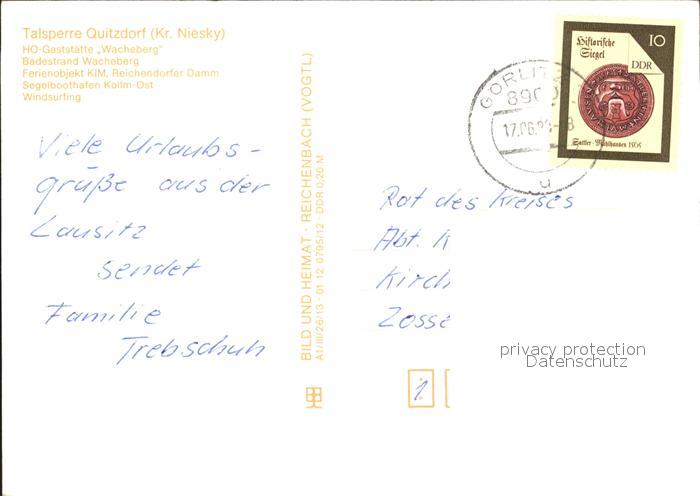 Talsperre Quitzdorf (Kr. Niesky)
HO-Gaststätte „Wacheberg"
Badestrand Wacheberg
Ferienobjekt KIM, Reichendorfer Damm
Segelboothafen Kollm-Ost
Windsurfing
Viele Urlaubs-
grüße aus der
Lausitz
sendet
Familie
Trebschuh
BILD UND HEIMAT · REICHENBACH (VOGTL)
A1/III/26/13 · 01 12 0795/12 · DDR 0,20 M
Historische
Siegel
10
DDR
Sattler · Mühlhausen 1565
GÖRLITZ
890
17.06.
u
Rat des Kreises
Abt. K
Kirch
Zosse
1
privacy protection
Datenschutz